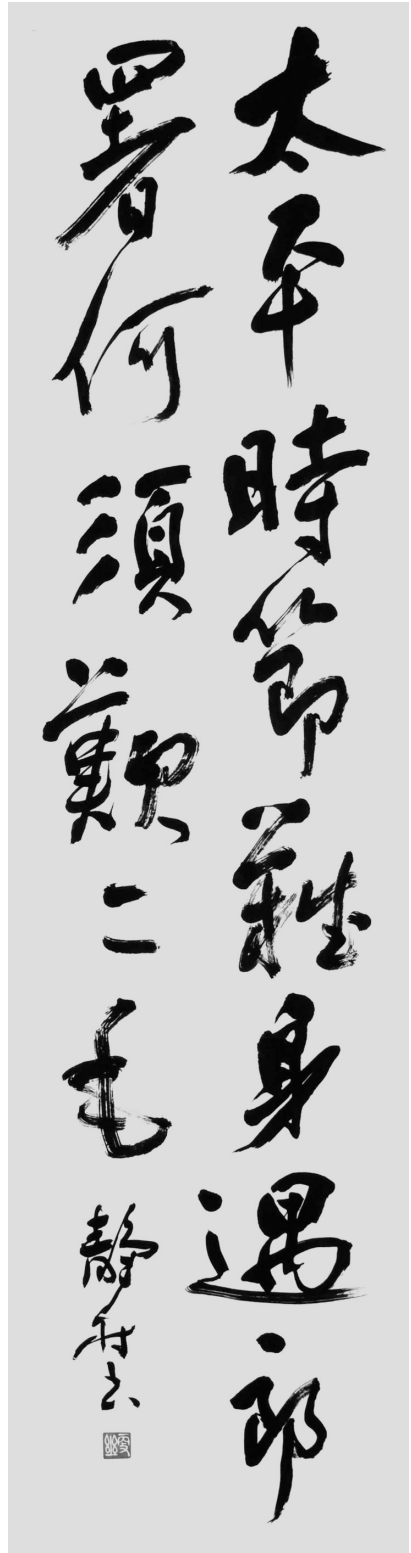 太平時節難身遇郎
署何須歎二毛
靜村書